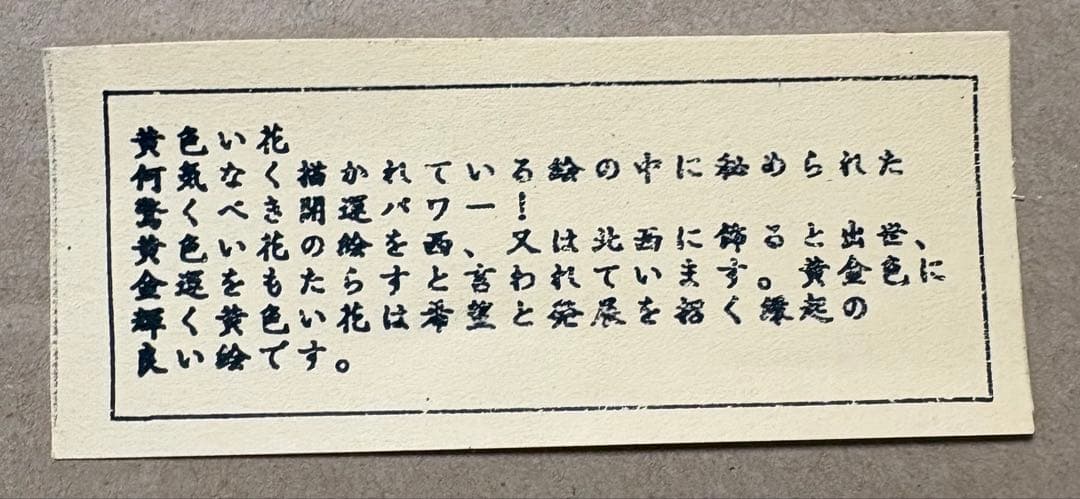 黄色い花
何気なく描かれている絵の中に秘められた
驚くべき開運パワー！
黄色い花の絵を西、又は北西に飾ると出世、
金運をもたらすと言われています。黄金色に
輝く黄色い花は希望と発展を招く縁起の
良い絵です。